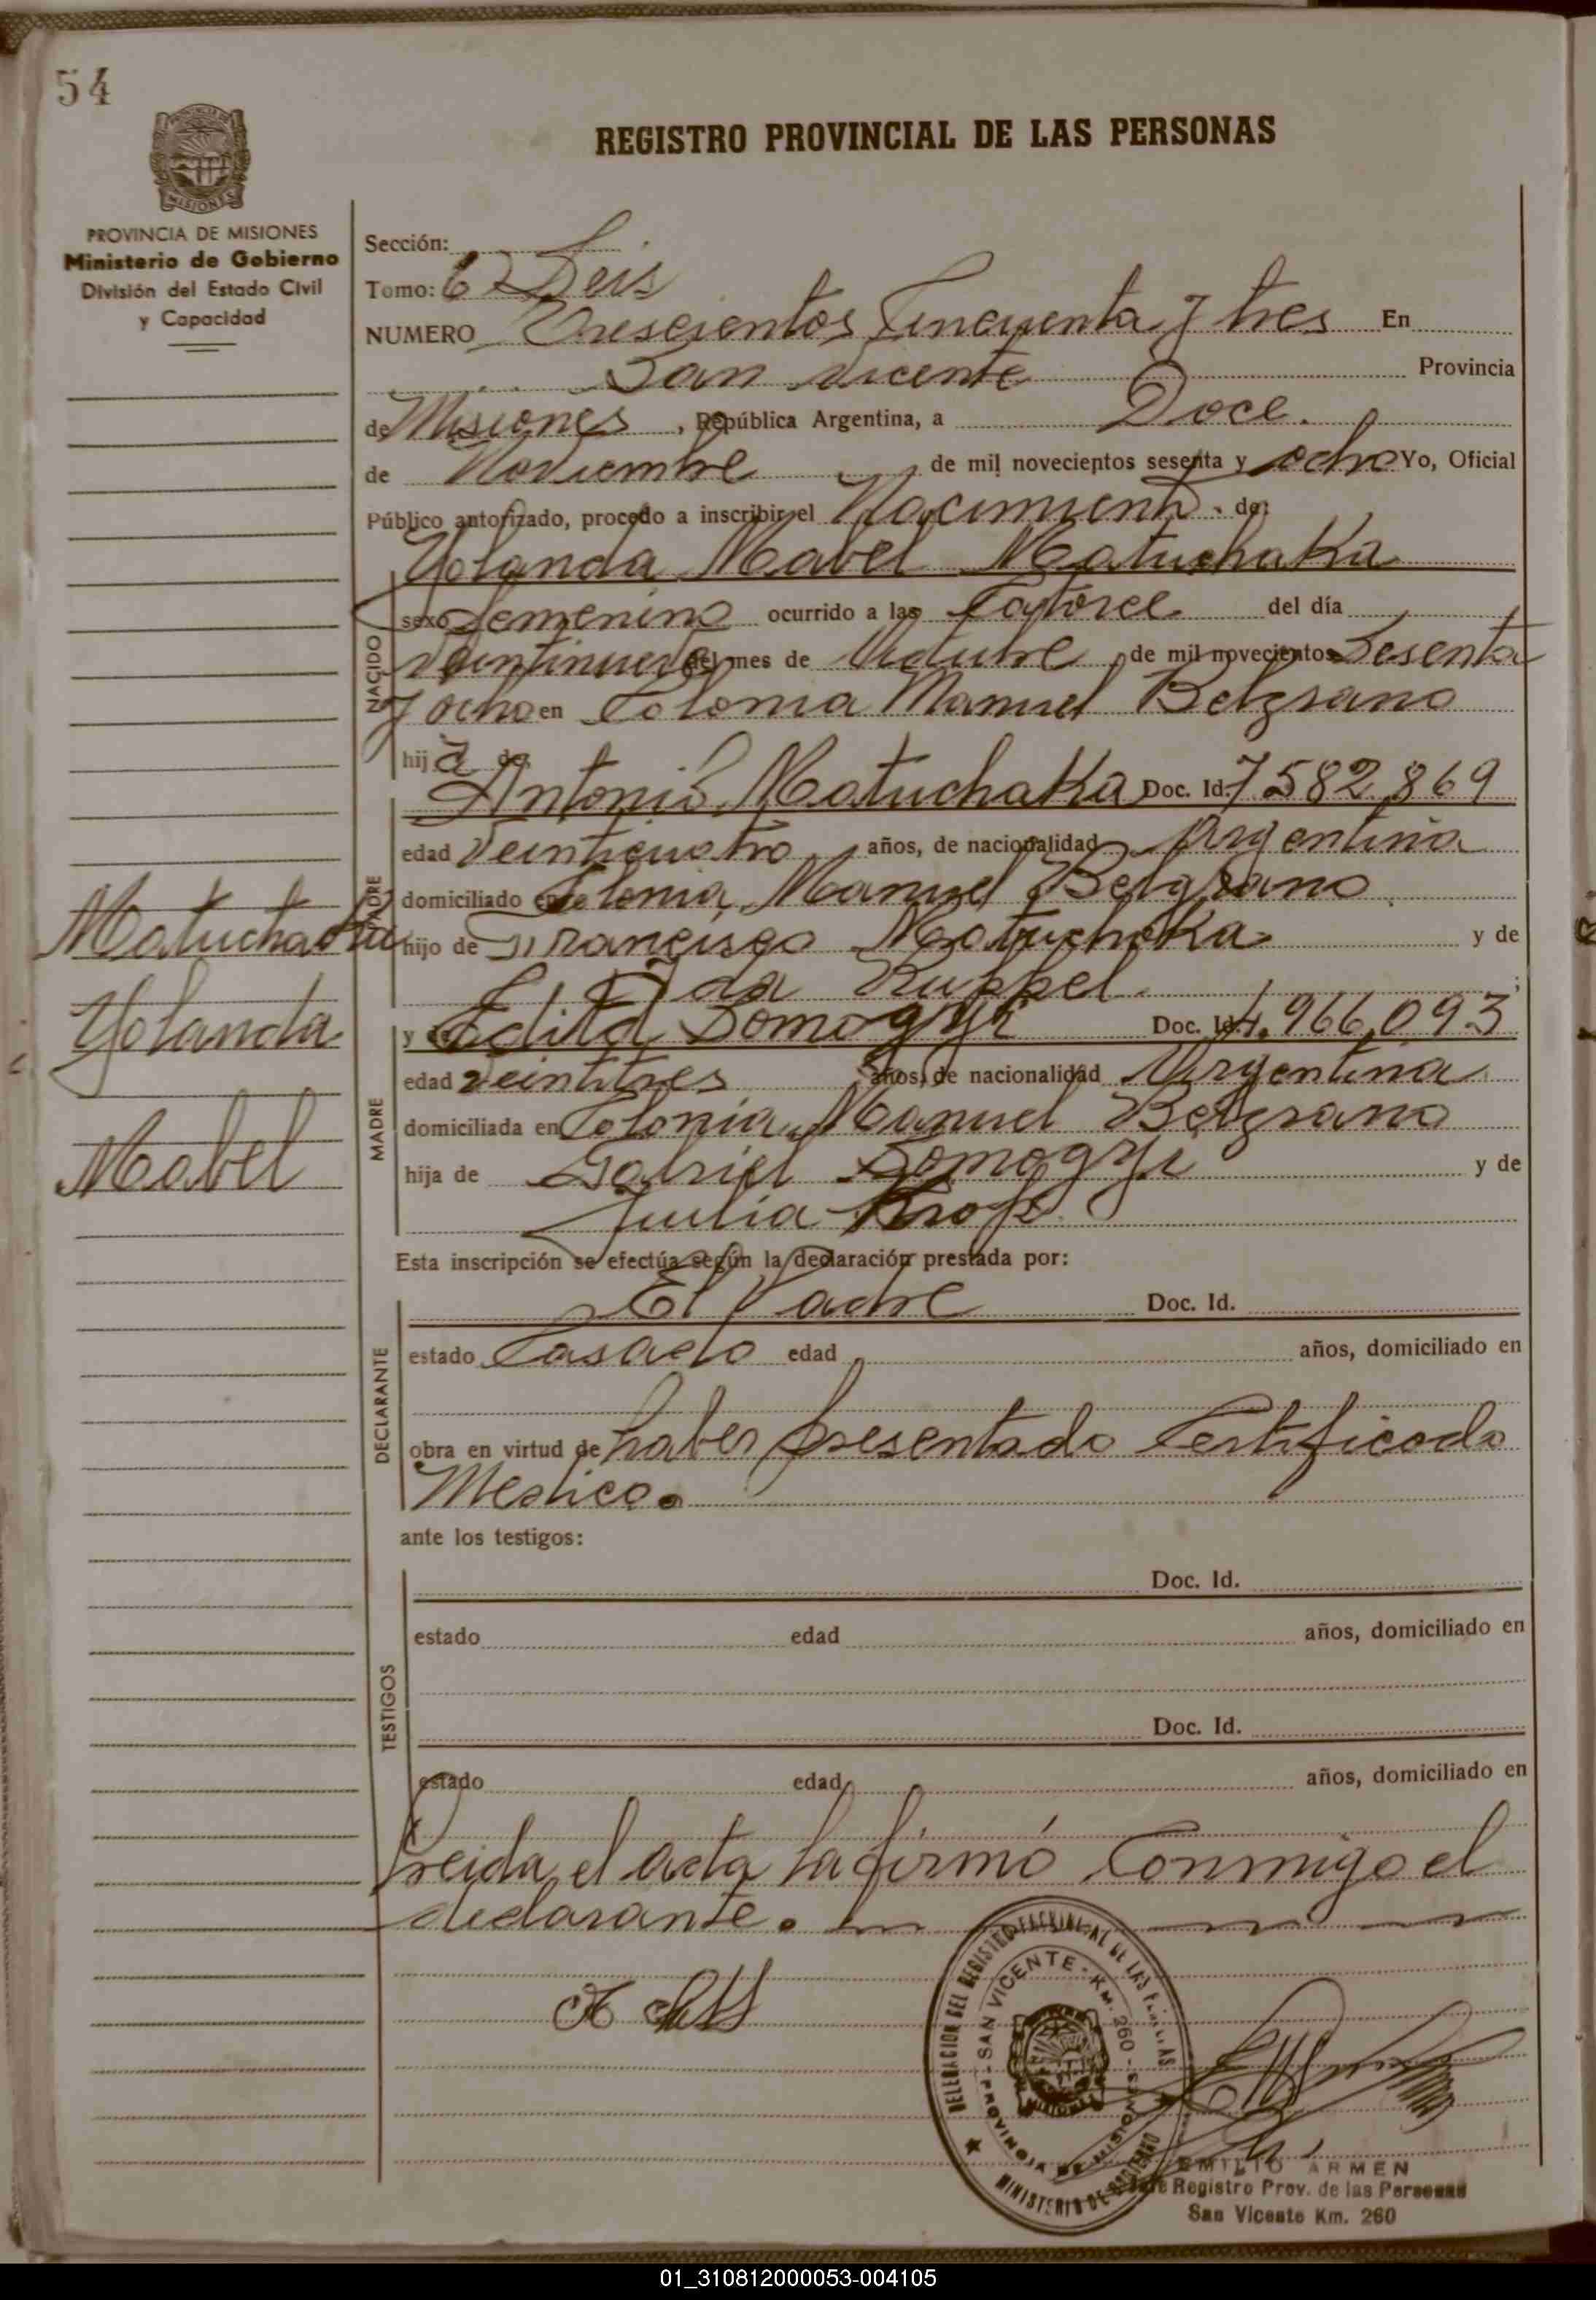 54
REGISTRO PROVINCIAL DE LAS PERSONAS
PROVINCIA DE MISIONES
Ministerio de Gobierno
División del Estado Civil
y Capacidad
Sección:
Tomo: 6 Seis
NUMERO Tresescientos Cincuenta y tres En
San Vicente Provincia
de Misiones, República Argentina, a Doce.
de Noviembre de mil novecientos sesenta y ocho Yo, Oficial
Público autorizado, procedo a inscribir el Nacimiento de:
Yolanda Mabel Matuchaka
NACIDO
sexo femenino ocurrido a las Catorce del día
veintinueve del mes de Octubre de mil novecientos Sesenta
y ocho en Colonia Manuel Belgrano
hija de
PADRE
Antonio Matuchaka Doc. Id. 7582,869
edad Veinticuatro años, de nacionalidad Argentina
domiciliado en Colonia Manuel Belgrano
hijo de Francisco Matuchaka y de
Ida Ruppel.
MADRE
y de Edita Somogyi Doc. Id. 4.966,093
edad veintitres años, de nacionalidad Argentina
domiciliada en Colonia Manuel Belgrano
hija de Gabriel Somogyi y de
Julia
Matuchaka
Yolanda
Mabel
Esta inscripción se efectúa según la declaración prestada por:
DECLARANTE
El Padre Doc. Id.
estado Casado edad años, domiciliado en
obra en virtud de haber presentado Certificado
Medico.
ante los testigos:
TESTIGOS
Doc. Id.
estado edad años, domiciliado en
Doc. Id.
estado edad años, domiciliado en
Leida el acta la firmó Conmigo el
declarante.
DELEGACION DEL REGISTRO PROVINCIAL DE LAS PERSONAS
SAN VICENTE - KM. 260 -
PROVINCIA DE MISIONES
MISIONES
MINISTERIO DE GOBIERNO
EMILIO ARMEN
Jefe Registro Prov. de las Personas
San Vicente Km. 260
01_310812000053-004105